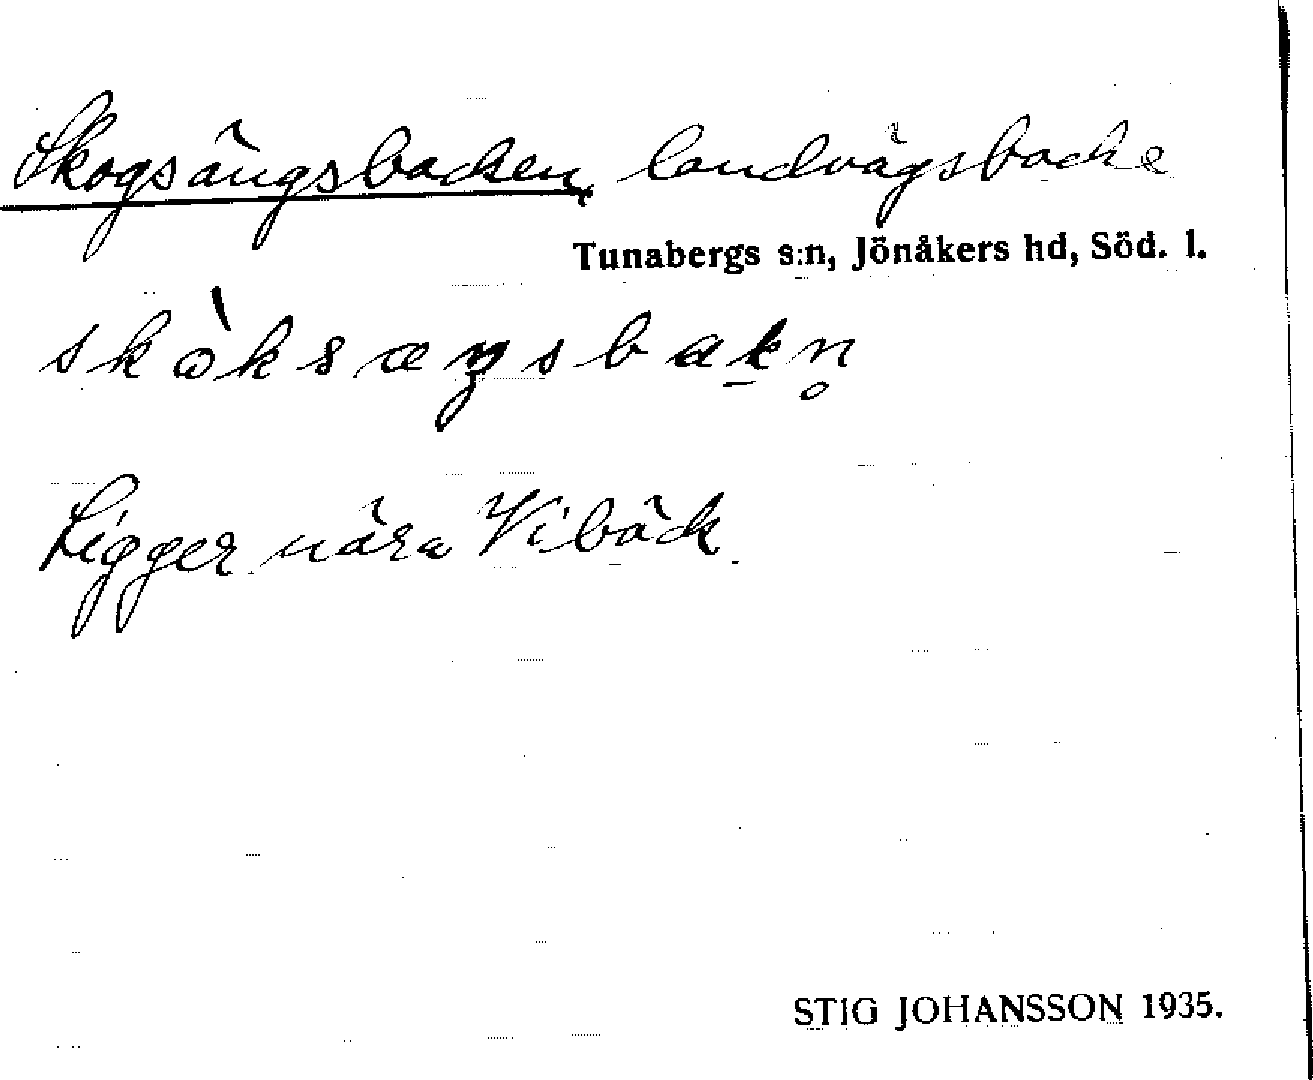 Skogsängsbacken, landvägsbacke
Tunabergs s:n, Jönåkers hd, Söd. l.
skòksæŋsbak̠n̥
Ligger nära Viбäck
STIG JOHANSSON 1935.